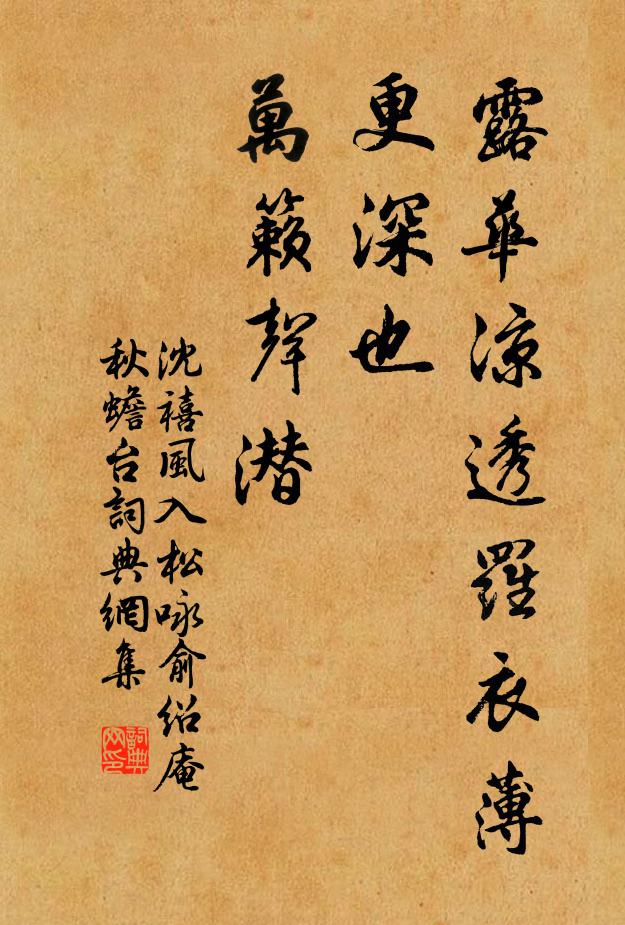 露華凉透羅衣薄
更深也
萬籟聲潜
沈禧風入松咏俞紹庵
秋蟾台詞典網集
詞典网印